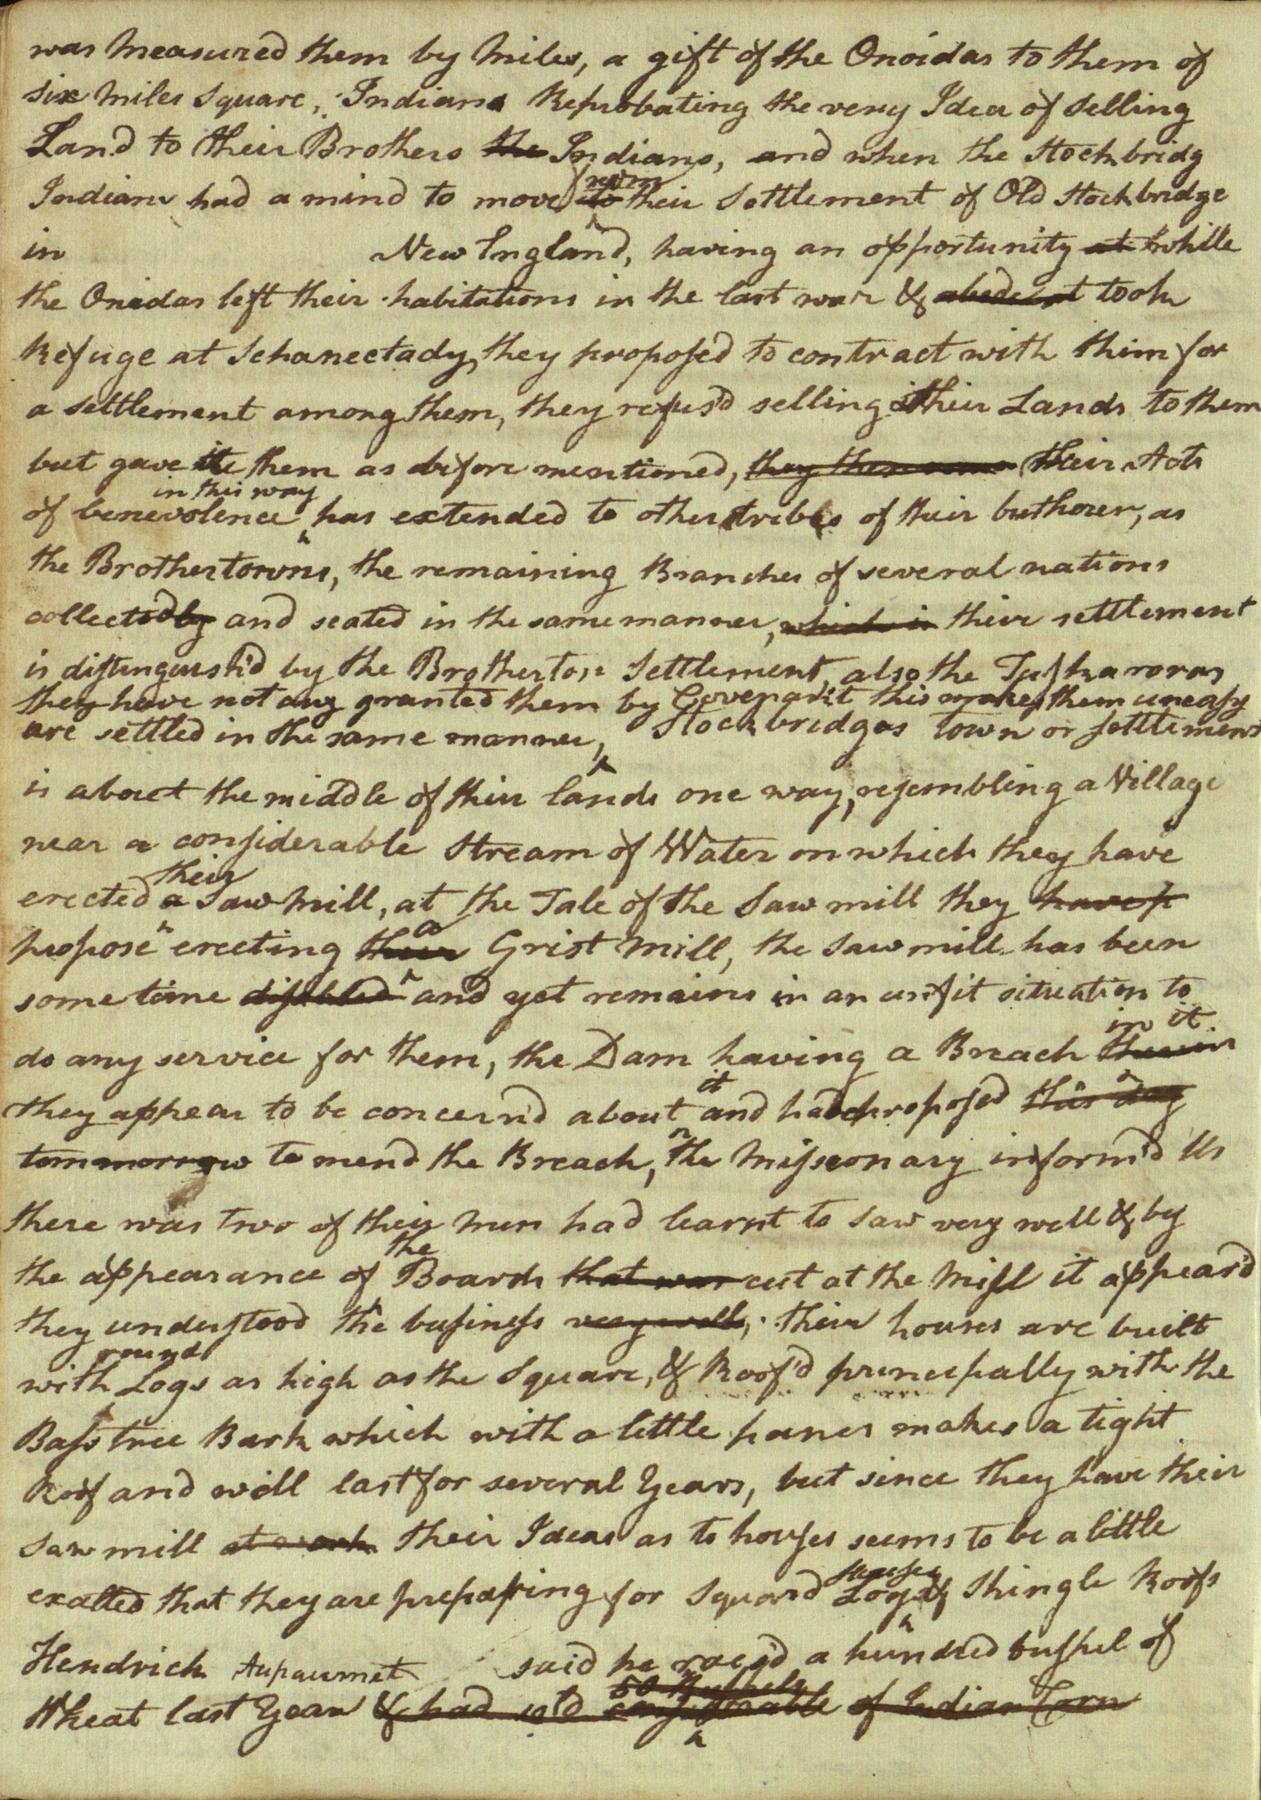 was Measured them by Miles, a gift of the Onoidas to them of
six Miles Square, Indians Reprobating the very Idea of selling
Land to their Brothers the Indians, and when the Stockbridg
Indians had a mind to move to their Settlement of Old Stockbridge
from
in New England, having an opportunity at while
the Onoidas left their habitations in the last war & took
Refuge at Schanectady, they proposed to contract with them for
a settlement among them, they refus'd selling their Lands to them
but gave it them as before mentioned, they their Acts
in this way
of benevolence has extended to other tribes of their butheren, as
the Brothertowns, the remaining Branches of several nations
collected by and seated in the same manner, which is their settlement
is distinguish'd by the Brotherton Settlement, also the Tuskaroras
they have not any granted them by Covenant this makes them uneasy
are settled in the same manner, Stockbridges Town or settlement
is about the middle of their lands one way, resembling a Village
near a considerable Stream of Water on which they have
their
erected a Saw Mill, at the Tale of the Saw mill they have p
a
propose erecting their Grist Mill, the Saw mill has been
some time disabled and yet remains in an unfit situation to
in it
do any service for them, the Dam having a Breach therein
it
they appear to be concern'd about and had proposed this day
tommorrow to mend the Breach, the Missionary inform'd Us
there was two of their men had learnt to saw very well & by
the
the appearance of Boards that was cut at the Mill it appear'd
they understood the business very well, their houses are built
round
with Logs as high as the Square, & Roof'd principally with the
Bass tree Bark which with a little panes makes a tight
Roof and will last for several Years, but since they have their
saw mill at work their Ideas as to houses seems to be a little
houses
exalted that they are preparing for Squard Log & Shingle Roofs
Hendrick Aupaumet said he rais'd a hundred bushel of
50 Bushels
Wheat last Year & had sold considerable of Indian Corn